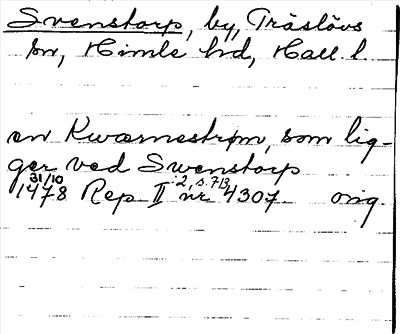 Svenstorp, by, Träslövs
sn, Himle hd, Hall l.
en Kwærnestrøm, som lig-
ger ved Swenstorp
31/10 1478 Rep II:2, s. 713 nr 4307 orig.